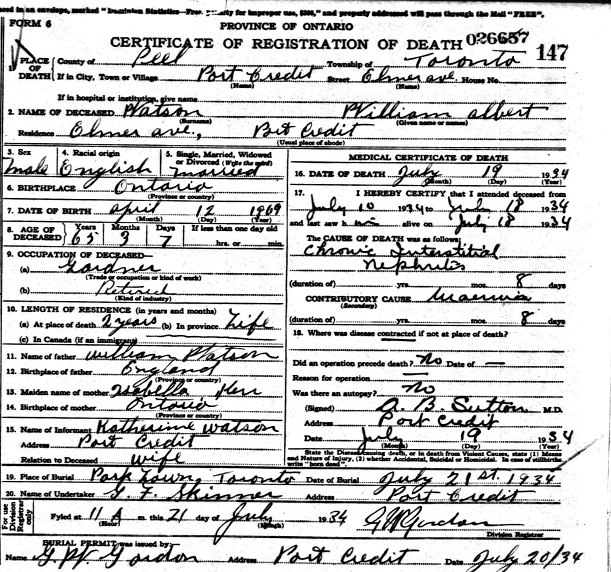 ced in an envelope, marked "Dominion Statistics—Free for improper use, $300," and properly addressed will pass through the Mail "FREE".
FORM 6 PROVINCE OF ONTARIO
CERTIFICATE OF REGISTRATION OF DEATH 026657 147
1. PLACE OF DEATH County of Peel Township of Toronto
(Name)
If in City, Town or Village Port Credit Street Elmer ave. House No.
(Name)
If in hospital or institution, give name
2. NAME OF DECEASED Watson William albert
(Surname) (Given name or names)
Residence Elmer ave., Port Credit
(Usual place of abode)
3. Sex 4. Racial origin 5. Single, Married, Widowed or Divorced (Write the word)
male English married
6. BIRTHPLACE Ontario
(Province or country)
7. DATE OF BIRTH April 12 1869
(Month) (Day) (Year)
8. AGE OF DECEASED Years Months Days If less than one day
65 3 7 hrs. or min.
9. OCCUPATION OF DECEASED—
(a) Gardner
(Trade or occupation or kind of work)
(b) Retired
(Kind of industry)
10. LENGTH OF RESIDENCE (in years and months)
(a) At place of death 2 years (b) In province Life
(c) In Canada (if an immigrant)
11. Name of father William Watson
12. Birthplace of father England
(Province or country)
13. Maiden name of mother Isabella Kerr
14. Birthplace of mother Ontario
(Province or country)
15. Name of Informant Katherine Watson
Address Port Credit
Relation to Deceased wife
MEDICAL CERTIFICATE OF DEATH
16. DATE OF DEATH July 19 1934
(Month) (Day) (Year)
17. I HEREBY CERTIFY that I attended deceased from
July 10 1934 to July 18 1934
and last saw him alive on July 18 1934
The CAUSE OF DEATH was as follows:
Chronic Interstitial
Nephritis
(duration of) yrs. mos. 8 days
CONTRIBUTORY CAUSE Uraemia
(Secondary)
(duration of) yrs. mos. 8 days
18. Where was disease contracted if not at place of death?
Did an operation precede death? No Date of —
Reason for operation
Was there an autopsy? No
(Signed) A. B. Sutton M.D.
Address Port Credit
Date July 19 1934
(Month) (Day) (Year)
State the Disease causing death, or in death from Violent Causes, state (1) Means and Nature of Injury, (2) whether Accidental, Suicidal or Homicidal. In case of stillbirths write "born dead".
19. Place of Burial Park Lawn, Toronto Date of Burial July 21st. 1934
20. Name of Undertaker Skinner Address Port Credit
For use of Division Registrar only
Fyled at 11 A m. this 21 day of July 1934 G W Gordon
(Hour) (Month) Division Registrar
BURIAL PERMIT was issued by:—
Name G. W. Gordon Address Port Credit Date July 20/34